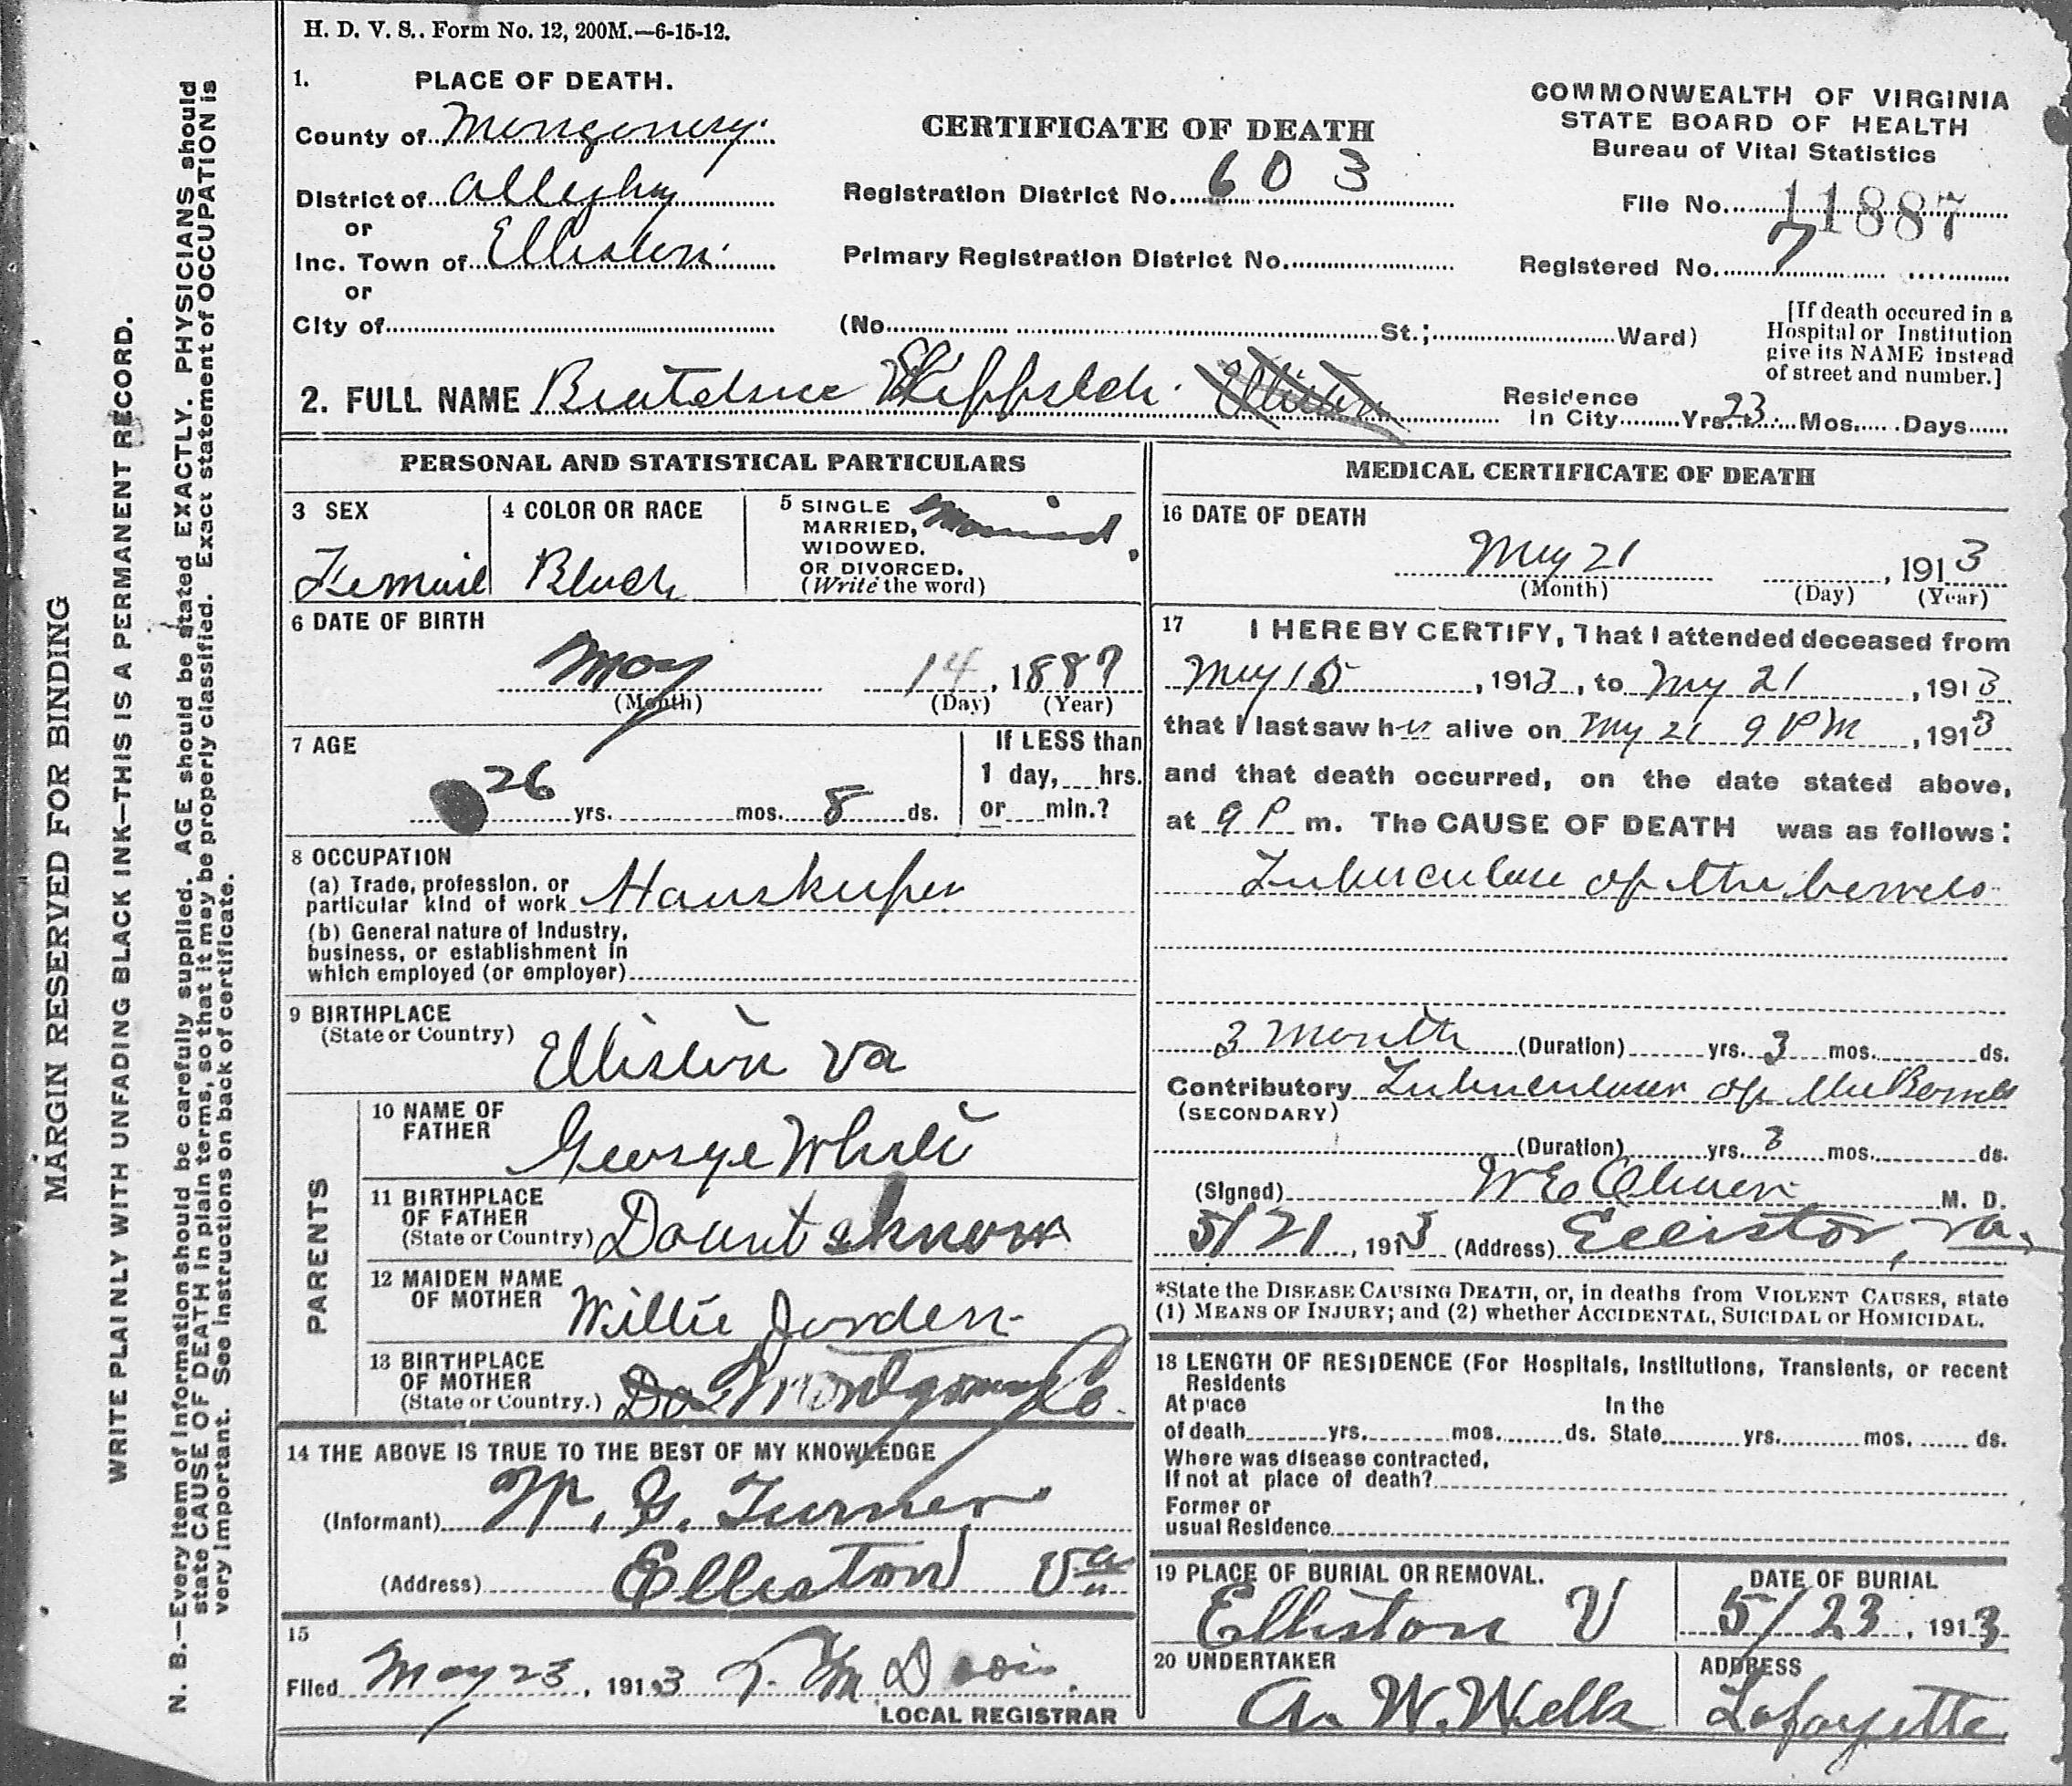 H. D. V. S.. Form No. 12, 200M.—6-15-12.
1. PLACE OF DEATH.
County of Mongomery.
District of Alleghy
or
Inc. Town of Elliston.
or
City of
CERTIFICATE OF DEATH
Registration District No. 603
Primary Registration District No.
(No. St.; Ward)
COMMONWEALTH OF VIRGINIA
STATE BOARD OF HEALTH
Bureau of Vital Statistics
File No. 11887
Registered No. 7
[If death occured in a
Hospital or Institution
give its NAME instead
of street and number.]
2. FULL NAME
Residence
In City Yrs. 23 Mos. Days
PERSONAL AND STATISTICAL PARTICULARS
3 SEX
Female
4 COLOR OR RACE
Black
5 SINGLE
MARRIED,
WIDOWED.
OR DIVORCED.
(Write the word)
Married.
6 DATE OF BIRTH
May 14, 1887
(Month) (Day) (Year)
7 AGE
26 yrs. mos. 8 ds.
If LESS than
1 day, hrs.
or min.?
8 OCCUPATION
(a) Trade, profession, or
particular kind of work Hauskeper
(b) General nature of Industry,
business, or establishment in
which employed (or employer)
9 BIRTHPLACE
(State or Country)
Elliston Va
PARENTS
10 NAME OF
FATHER
George White
11 BIRTHPLACE
OF FATHER
(State or Country) Dount know
12 MAIDEN NAME
OF MOTHER
Willie Jorden
13 BIRTHPLACE
OF MOTHER
(State or Country.) Do Montgomery Co.
14 THE ABOVE IS TRUE TO THE BEST OF MY KNOWLEDGE
(Informant) W. G. Turner
(Address) Elliston Va
15
Filed May 23, 1913 T. M. Davis.
LOCAL REGISTRAR
MEDICAL CERTIFICATE OF DEATH
16 DATE OF DEATH
May 21, 1913
(Month) (Day) (Year)
17 I HEREBY CERTIFY, That I attended deceased from
May 15, 1913, to May 21, 1913
that I last saw her alive on May 21 9 PM, 1913
and that death occurred, on the date stated above,
at 9 P m. The CAUSE OF DEATH was as follows:
Tuberculose of the bowels
3 Month (Duration) yrs. 3 mos. ds.
Contributory Tuberculoses of the Bowels
(SECONDARY)
(Duration) yrs. 3 mos. ds.
(Signed) M. D.
5/21, 1913 (Address) Elliston, Va.
*State the DISEASE CAUSING DEATH, or, in deaths from VIOLENT CAUSES, state
(1) MEANS OF INJURY; and (2) whether ACCIDENTAL, SUICIDAL or HOMICIDAL.
18 LENGTH OF RESIDENCE (For Hospitals, Institutions, Transients, or recent
Residents
At place
of death yrs. mos. ds.
In the
State yrs. mos. ds.
Where was disease contracted,
If not at place of death?
Former or
usual Residence
19 PLACE OF BURIAL OR REMOVAL.
Elliston V
DATE OF BURIAL
5/23, 1913
20 UNDERTAKER
A. W. Welk
ADDRESS
Lafayette
MARGIN RESERVED FOR BINDING
WRITE PLAINLY WITH UNFADING BLACK INK—THIS IS A PERMANENT RECORD.
N. B.—Every item of information should be carefully supplied. AGE should be stated EXACTLY. PHYSICIANS should
state CAUSE OF DEATH in plain terms, so that it may be properly classified. Exact statement of OCCUPATION is
very important. See instructions on back of certificate.